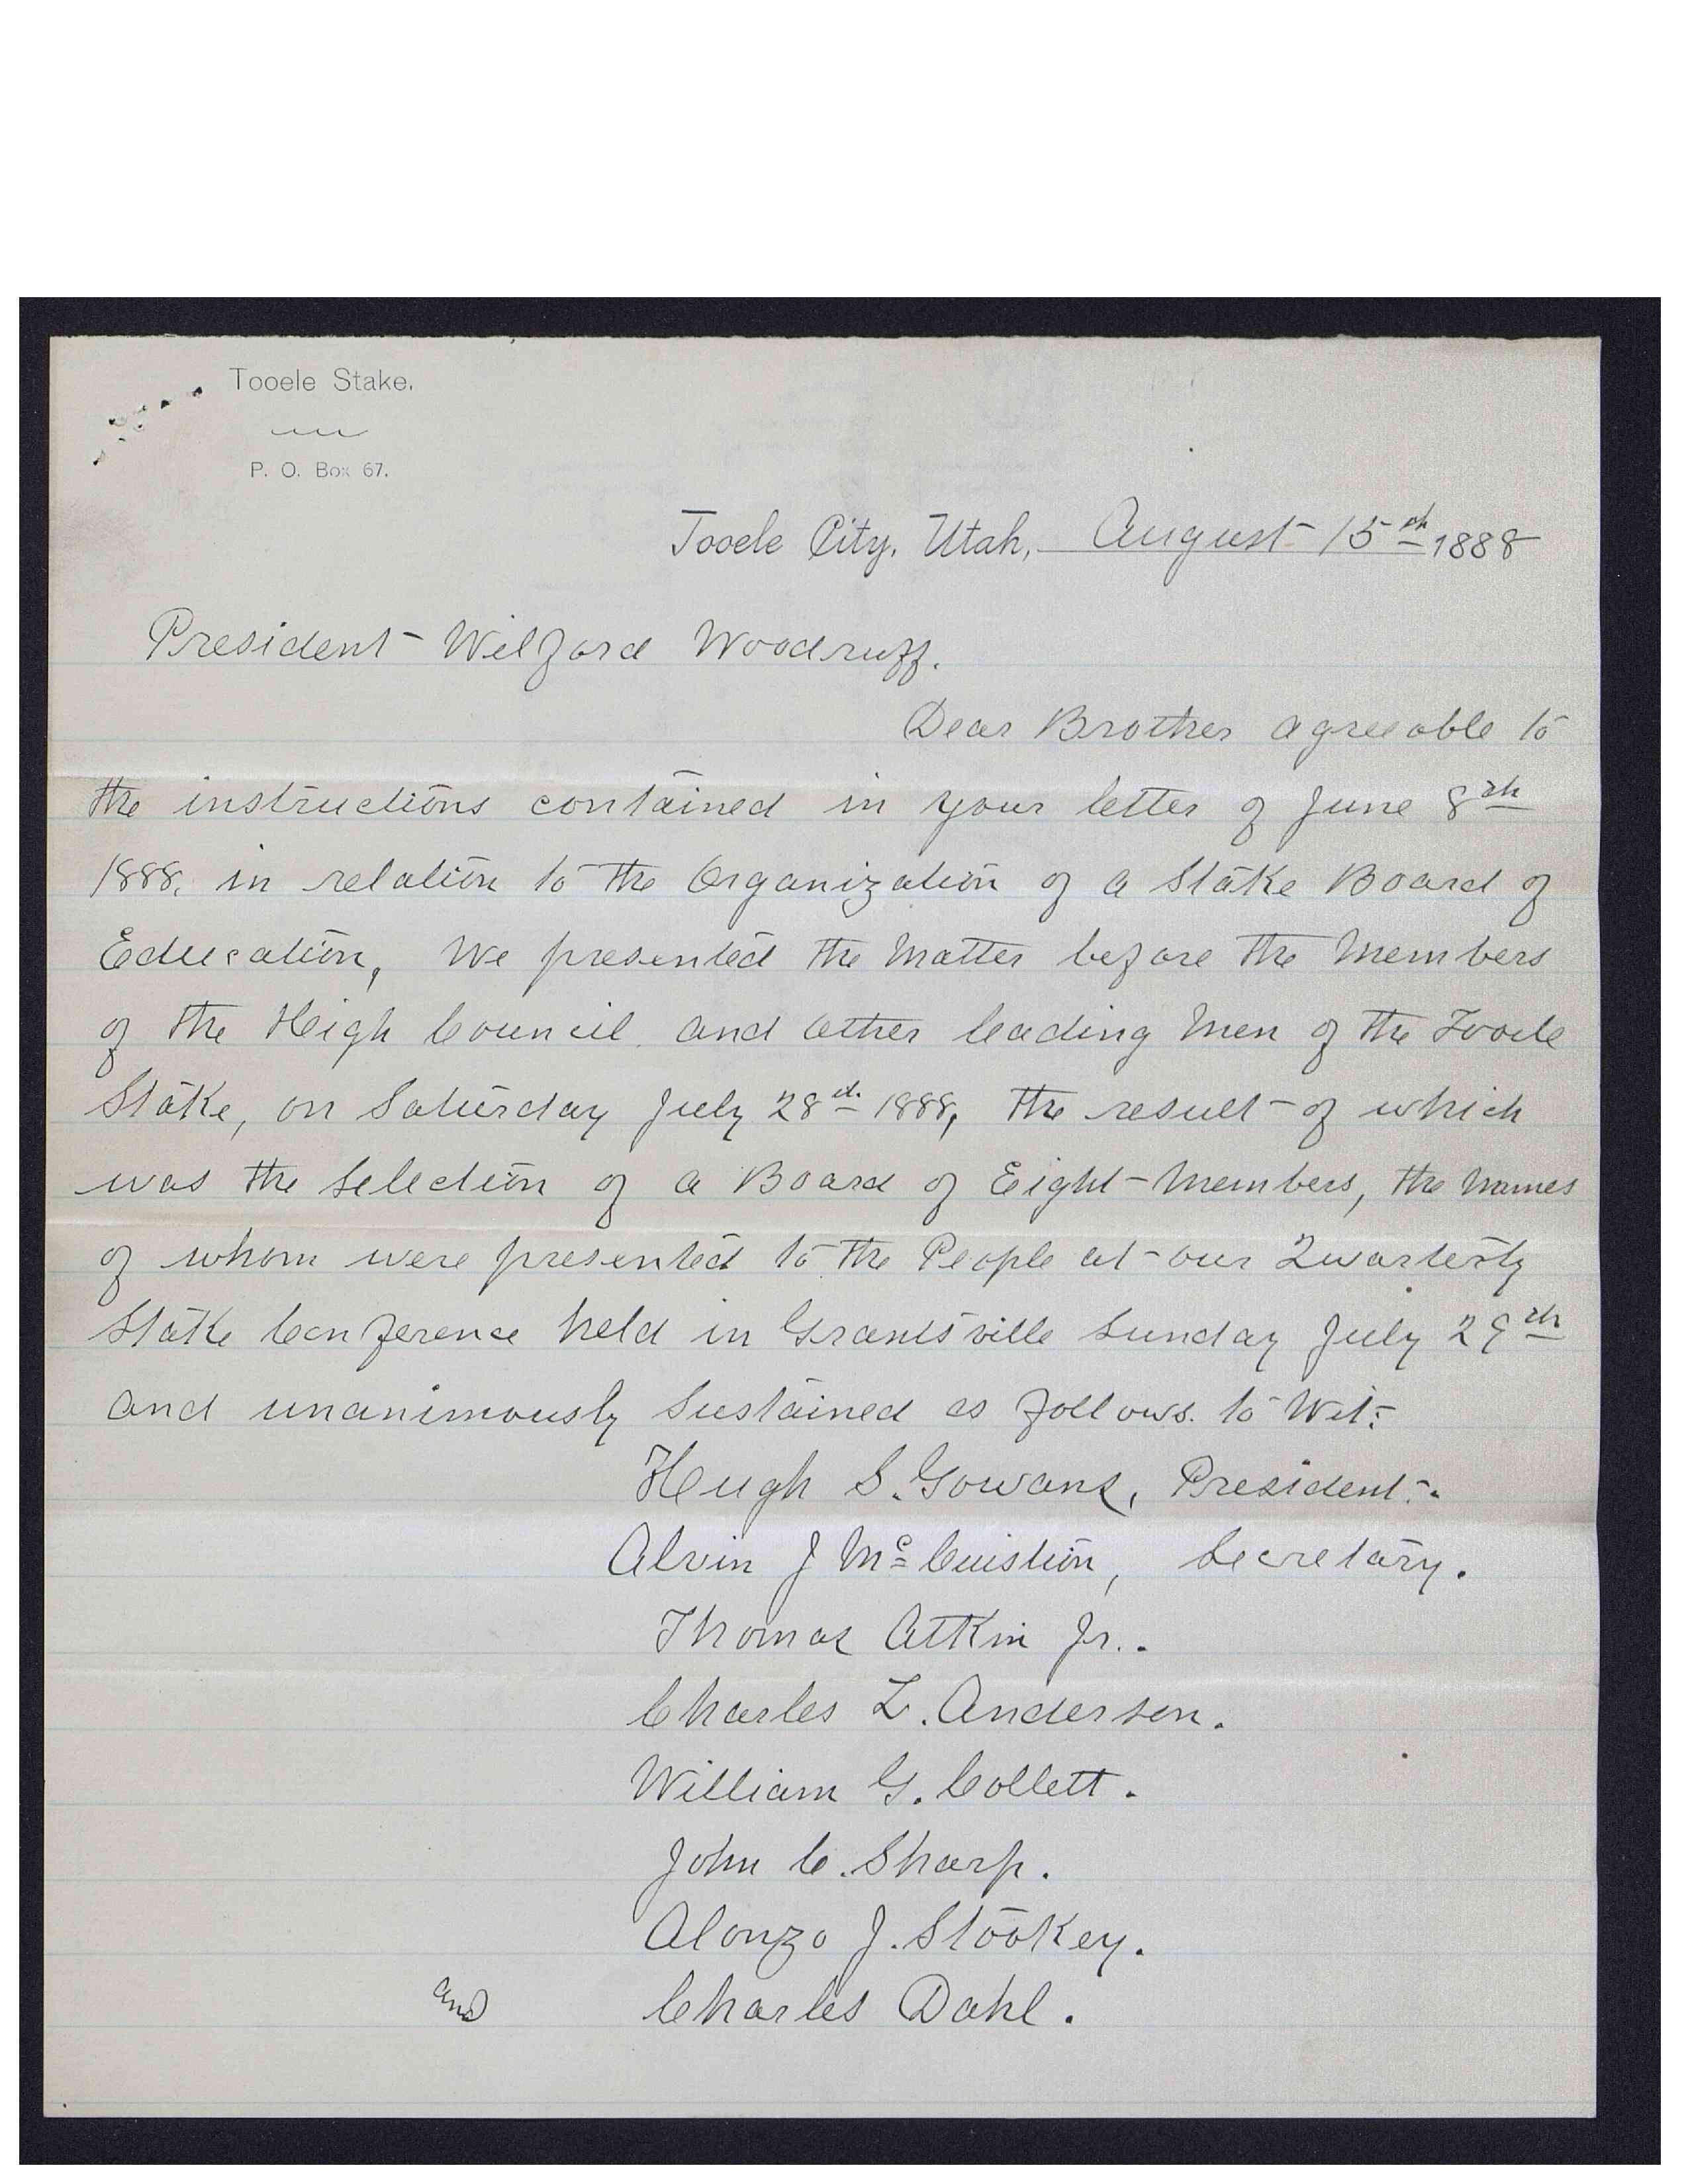 Tooele Stake.
P. O. Box 67.
Tooele City, Utah, August 15th 1888
President Wilford Woodruff.
Dear Brother agreeable to
the instructions contained in your letter of June 8th
1888, in relation to the Organization of a Stake Board of
Education, We presented the Matter before the Members
of the High Council and other leading Men of the Tooele
Stake, on Saturday July 28th 1888, the result of which
was the Selection of a Board of Eight Members, the Names
of whom were presented to the People at our Quarterly
Stake Conference held in Grantsville Sunday July 29th
and unanimously Sustained as follows. to Wit:
Hugh S. Gowans, President.
Alvin J Mc Cuistion, Secretary.
Thomas Atkin Jr..
Charles L. Anderson.
William G. Collett.
John C. Sharp.
Alonzo J. Stookey.
and Charles Dahl.